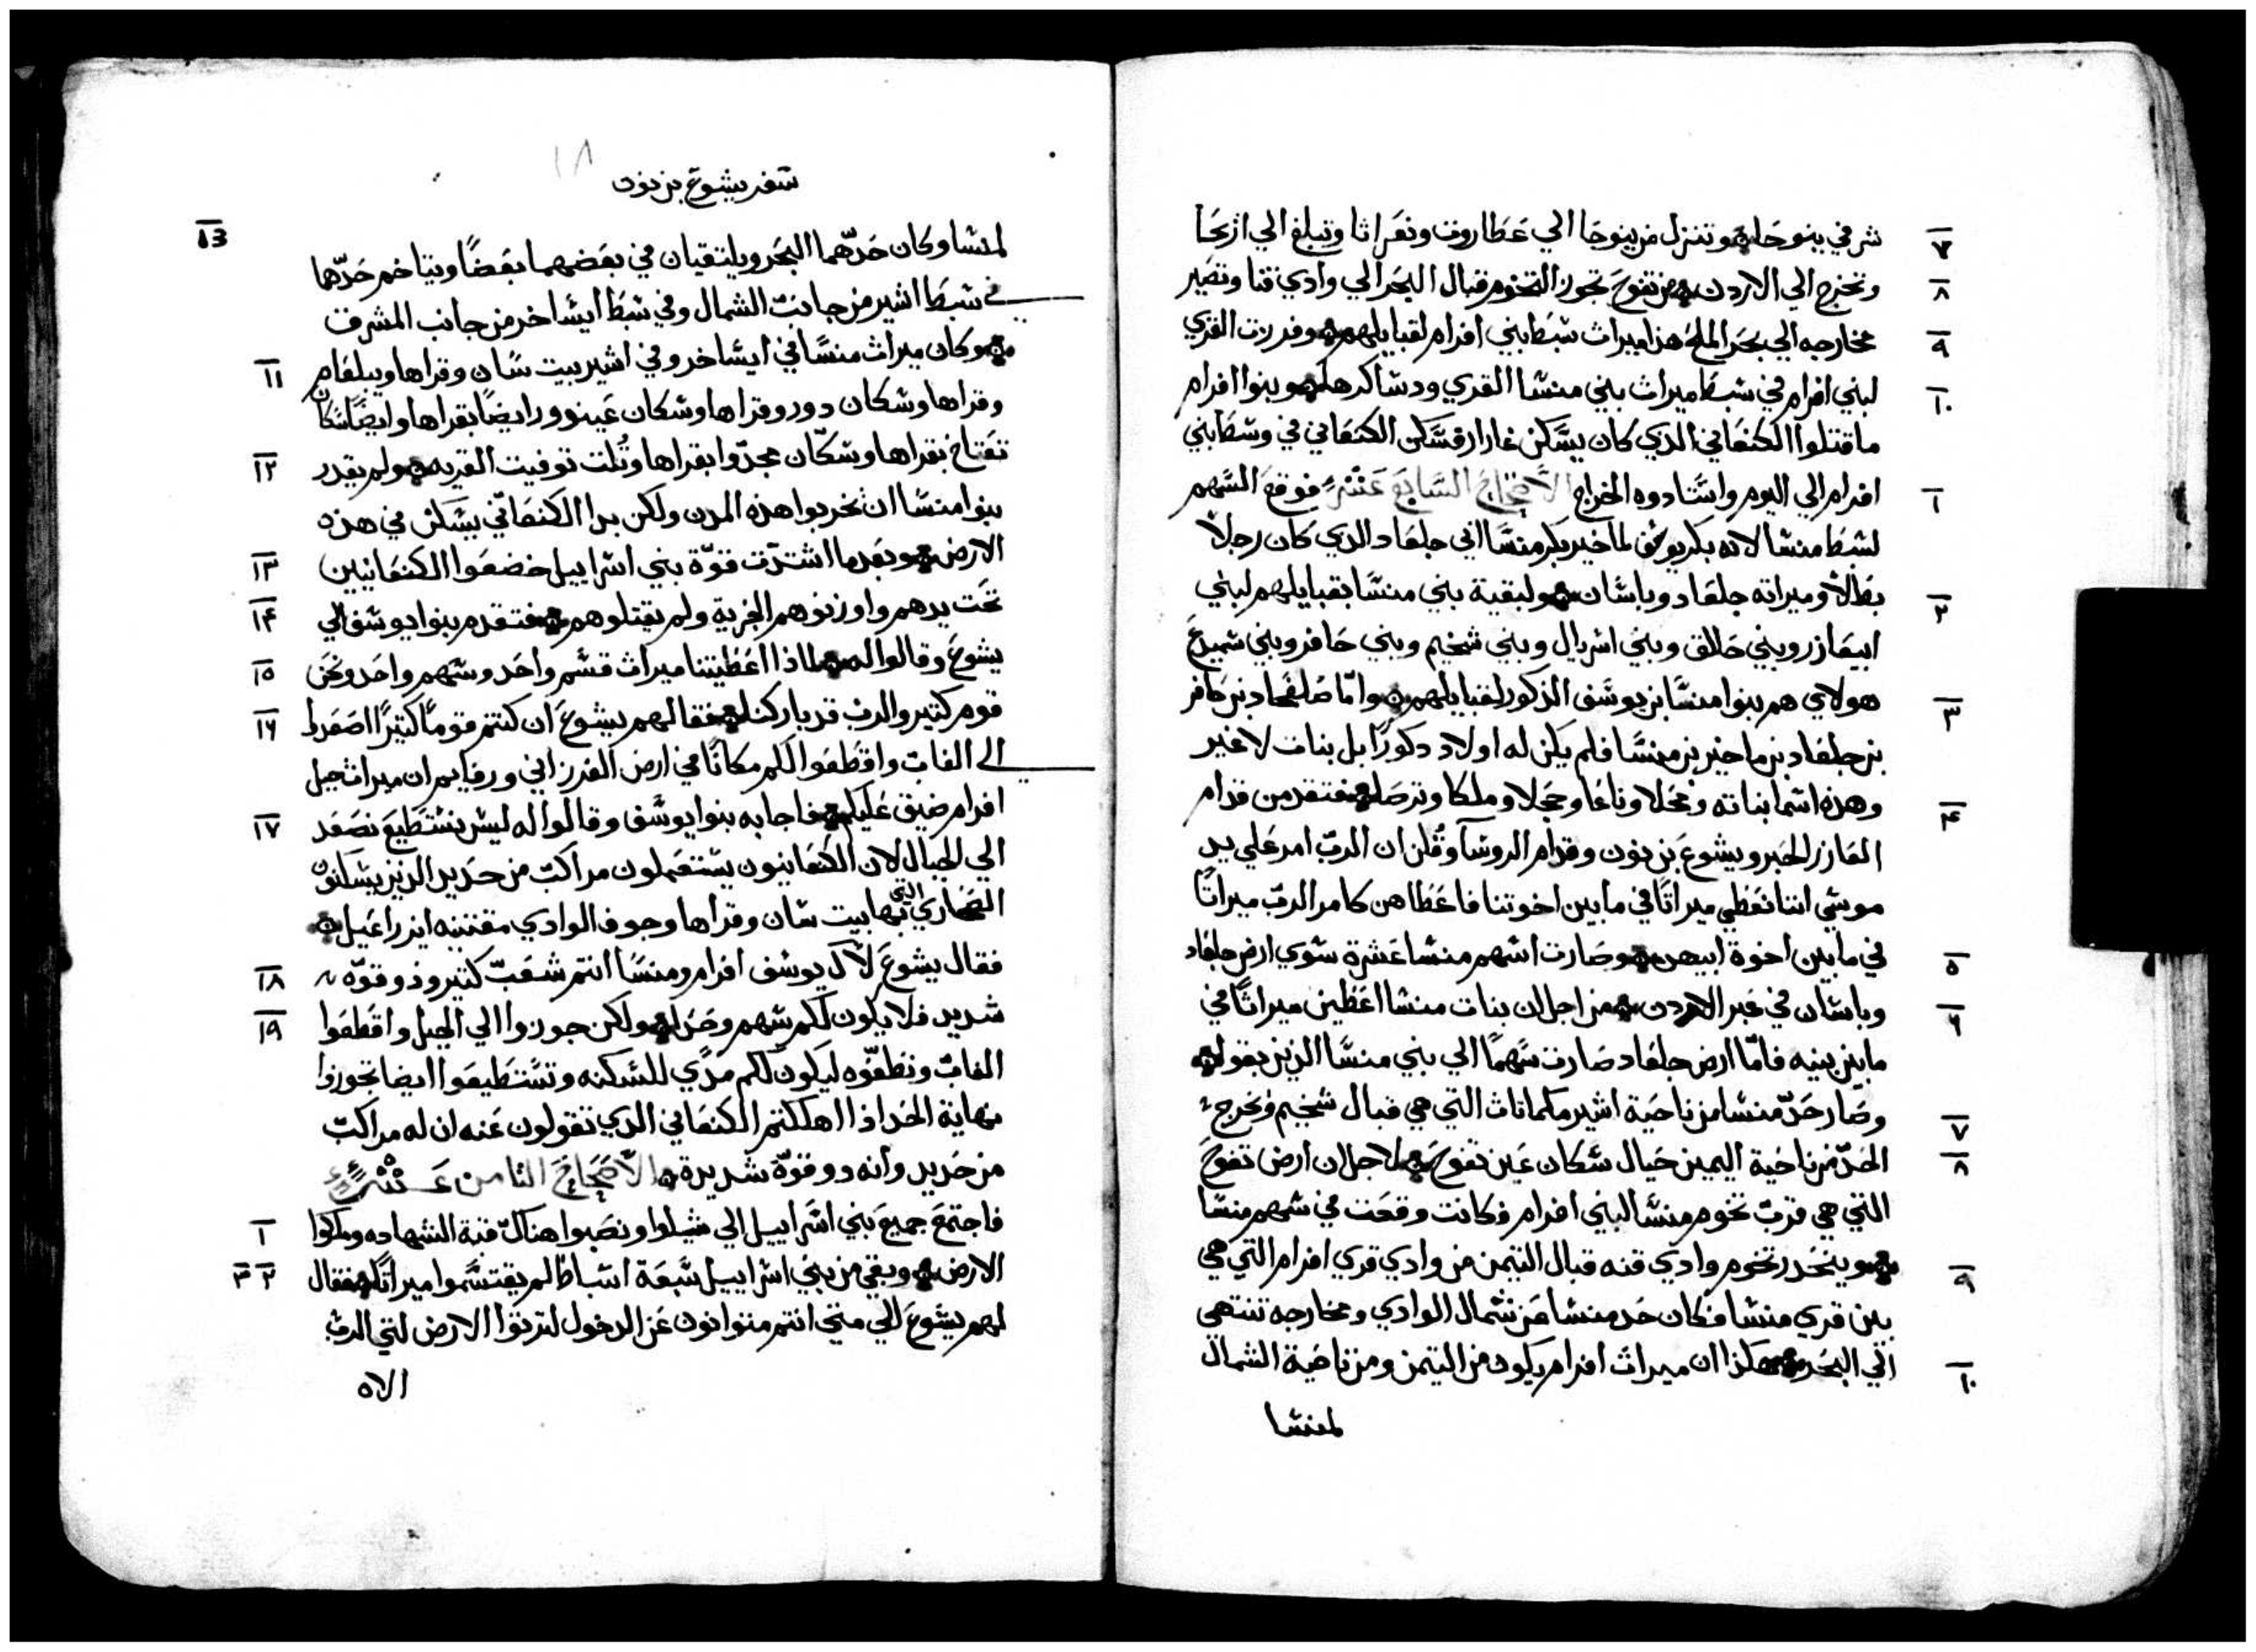 ٧ شرقي ينوحا وتنزل من ينوحا الي عطاروت ونعراثا وتبلغ الي اريحا
٨ وتخرج الي الاردن من تفوح تجوز التخوم قبال البحر الي وادي قنا وتصير
٩ مخارجه الي بحر الملح هذا ميراث شبط بني افرام لقبايلهم وفرزت القري
١٠ لبني افرام في شبط ميراث بني منشا القري ودشاكرها وبنوا افرام
ما قتلوا الكنعاني الذي كان يسكن غازار فسكن الكنعاني في وسط بني
١ افرام الي اليوم واستادوه الخراج الاصحاح السابع عشر فوقع السهم
لشبط منشا لانه بكر يوسف لماخير بكر منسا ابي جلعاد الذي كان رجلاً
٢ بطالاً وميراثه جلعاد وباشان ولبقية بني منسا بقبايلهم لبني
ابيعازر وبني حالاق وبني اشريال وبني شخيم وبني حافر وبني شميدع
٣ هولاي هم بنوا منسا بن يوسف الذكور لقبايلهم واما صلفحاد بن حافر
بن جلعاد بن ماخير بن منسا فلم يكن له اولاد دكوراً بل بنات لا غير
٤ وهذه اسما بناته محلا وناعا وحجلا وملكا وترصا فتقدمن قدام
العازر الحبر ويشوع بن نون وقدام الروسآ وقلن ان الرب امر علي يد
موسي اننا نعطي ميراثاً في ما بين اخوتنا فاعطاهن كامر الرب ميراثاً
٥ في ما بين اخوة ابيهن وصارت اسهم منشا عشرة سوي ارض جلعاد
٦ وباشان في عبر الاردن من اجل ان بنات منشا اعطين ميراثاً في
ما بين بنيه فاما ارض جلعاد صارت سهماً الي بني منسا الذين بقوا
٧ وصار حد منشا من ناحية اشير مكماثاث التي هي قبال شخيم وتخرج
٨ الحد من ناحية اليمين حيال سكان عين تفوح لاجل ان ارض تفوح
التي هي قرب تخوم منسا لبني افرام وكانت وقعت في سهم منسا
٩ وينحدر تخوم وادي قنه قبال التيمن من وادي قري افرام التي هي
بين قري منشا وكان حد منشا من شمال الوادي ومخارجه تنتهي
١٠ الي البحر هكذا ان ميراث افرام يكون من التيمن ومن ناحية الشمال
لمنشا
١٨
سفر يشوع بن نون
لمنشا وكان حدهما البحر ويلتقيان في بعضهما بعضاً ويتاخم حدها
في شبط اشير من جانب الشمال وفي شبط ايساخر من جانب المشرق
١١ وكان ميراث منسا في ايساخر وفي اشير بيت سان وقراها ويبلعام
وقراها وسكان دور وقراها وسكان عيندور ايضاً بقراها وايضاً سكان
١٢ تعتاخ بقراها وسكان مجدوا بقراها وتلت توفيت القريه ولم يقدر
بنوا منسا ان يخربوا هذه المدن ولكن بدا الكنعاني يسكن في هذه
١٣ الارض وبعد ما اشتدت قوة بني اسراييل خضعوا الكنعانيين
١٤ تحت يدهم واوزنوهم الجزية ولم يقتلوهم فتقدم بنوا يوسف الي
١٥ يشوع وقالوا له لماذا اعطيتنا ميراث قسم واحد وسهم واحد ونحن
١٦ قوم كثير والرب قد باركنا فقال لهم يشوع ان كنتم قوماً كثيراً اصعدوا
الي الغاب واقطعوا لكم مكاناً في ارض الفرزاني ورفايم ان ميراث جبل
١٧ افرام ضيق عليكم فاجابه بنوا يوسف وقالوا له ليس نستطيع نصعد
الي الجبال لان الكنعانيون يستعملون مراكب من حديد الذين يسكنون
الصحاري التي بها بيت سان وقراها وجوف الوادي مقتنيه ايزراعيل
١٨ فقال يشوع لآل يوسف افرام ومنسا انتم شعب كثير وذو قوه
١٩ شديد فلا يكون لكم سهم وحد ولكن جوزوا الي الجبل واقطعوا
الغاب ونظفوه ليكون لكم مدي للسكنه وتستطيعوا ايضا تجوزوا
نهاية الحد اذا اهلكتم الكنعاني الذي تقولون عنه ان له مراكب
من حديد وانه دو قوة شديدة الاصحاح الثامن عشر
١ فاجتمع جميع بني اسراييل الي شيلوا ونصبوا هناك قبة الشهاده وملكوا
٢ ٣ الارض وبقي من بني اسراييل سبعة اسباط لم يقتسموا ميراثاً فقال
لهم يشوع الي متي انتم متوانون عن الدخول لترثوا الارض لتي الرب
الاه